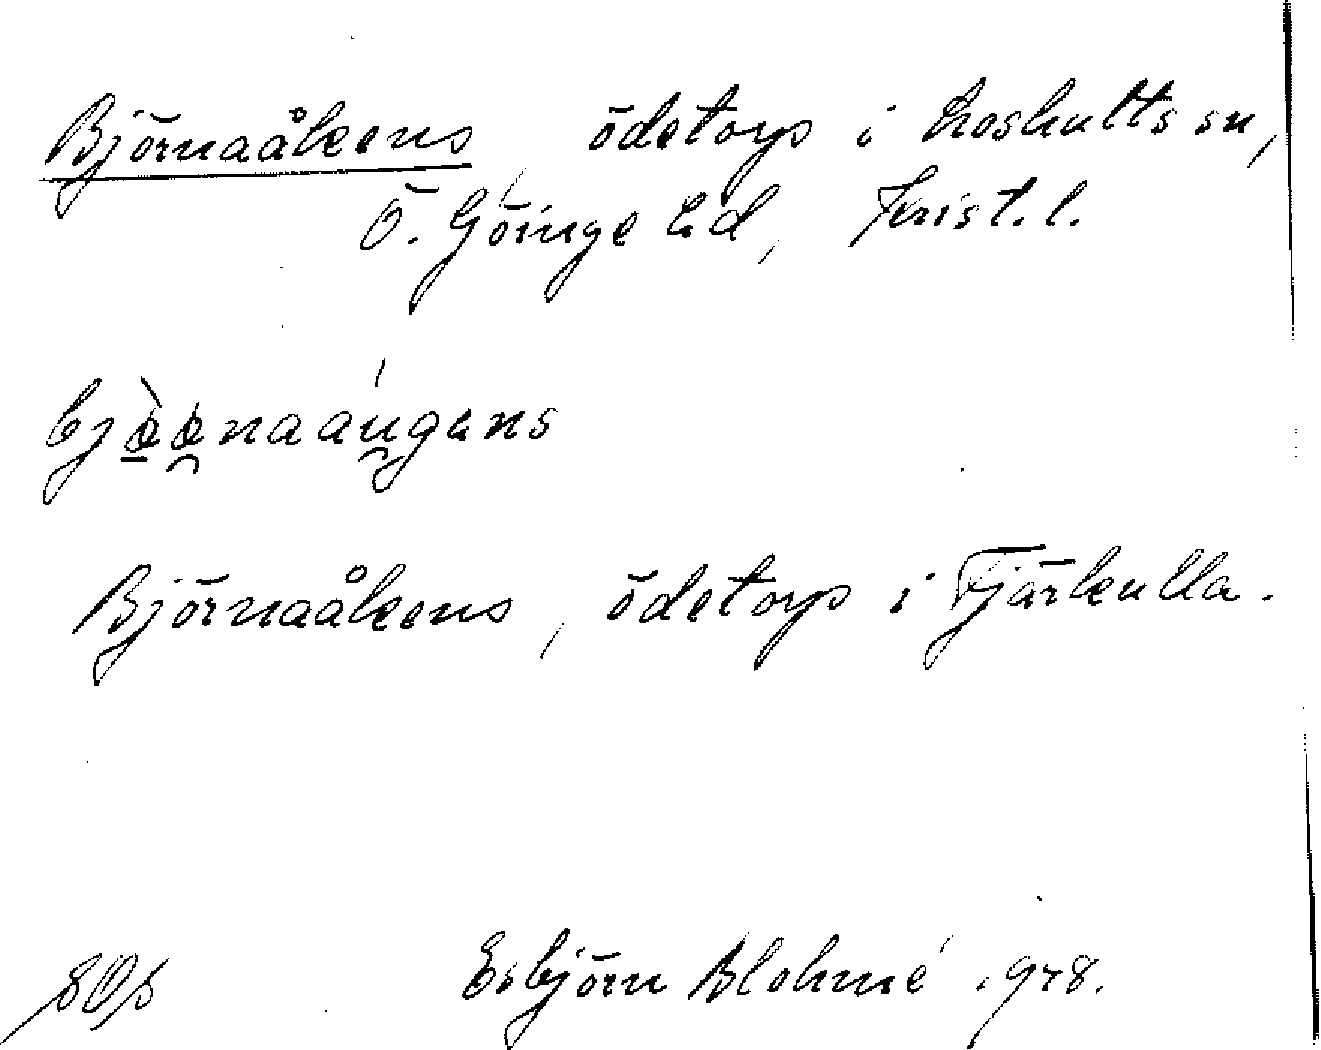 Björnaåkens, ödetorp i Loshults sn,
Ö. Göinge hd, Krist. l.
bjø̱̀ønaáu̯gens
Björnaåkens, ödetorp i Tjärkulla.
Esbjörn Blohmé 1948.